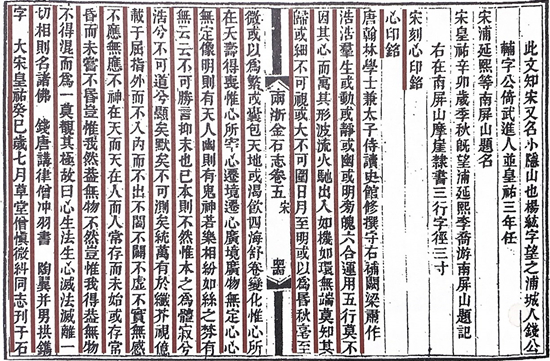 此文知宋又名小隱山也楊紘字望之浦城人錢公
輔字公倚武進人並皇祐三年任
宋浦延熙等南屏山題名
宋皇祐辛卯歲季秋旣望浦延熙李喬游南屏山題記
右在南屏山摩崖隸書三行字徑三寸
宋刻心印銘
心印銘
唐翰林學士兼太子侍讀史館修撰守右補闕梁肅作
浩浩羣生或動或靜或幽或明旁魄六合運用五行莫不
因其心而寓其形波流火馳出入如機如環無端莫知其
歸或細不可視或大不可圍日月至明或以爲昏秋毫至
兩浙金石志卷五 宋
微或以爲繁或囊包天地或渴飲四海舒卷變化惟心所
在夭壽得喪惟心所宰心遷境遷心廣境廣物無定心心
無定像明則有天人幽則有鬼神苦樂相紛如絲之棼有
無云云不可勝言抑末也已本則不然惟本之爲體寂兮
浩兮不可道兮顯矣默矣不可測矣統萬有於纖芥視億
載於屈指外而不入內而不出不闔不闢不虛不實無感
不應無應不神在天而天在人而人常存而未始或存常
昏而未嘗不昏豈惟我然盍無物不然豈惟我得盍無物
不得混而爲一莫覩其極故曰心生法生心滅法滅離一
切相則名諸佛 錢唐講律僧冲羽書 陶翼并男拱鐫
字 大宋皇祐癸巳歲七月草堂僧愼微糾同志刊于石